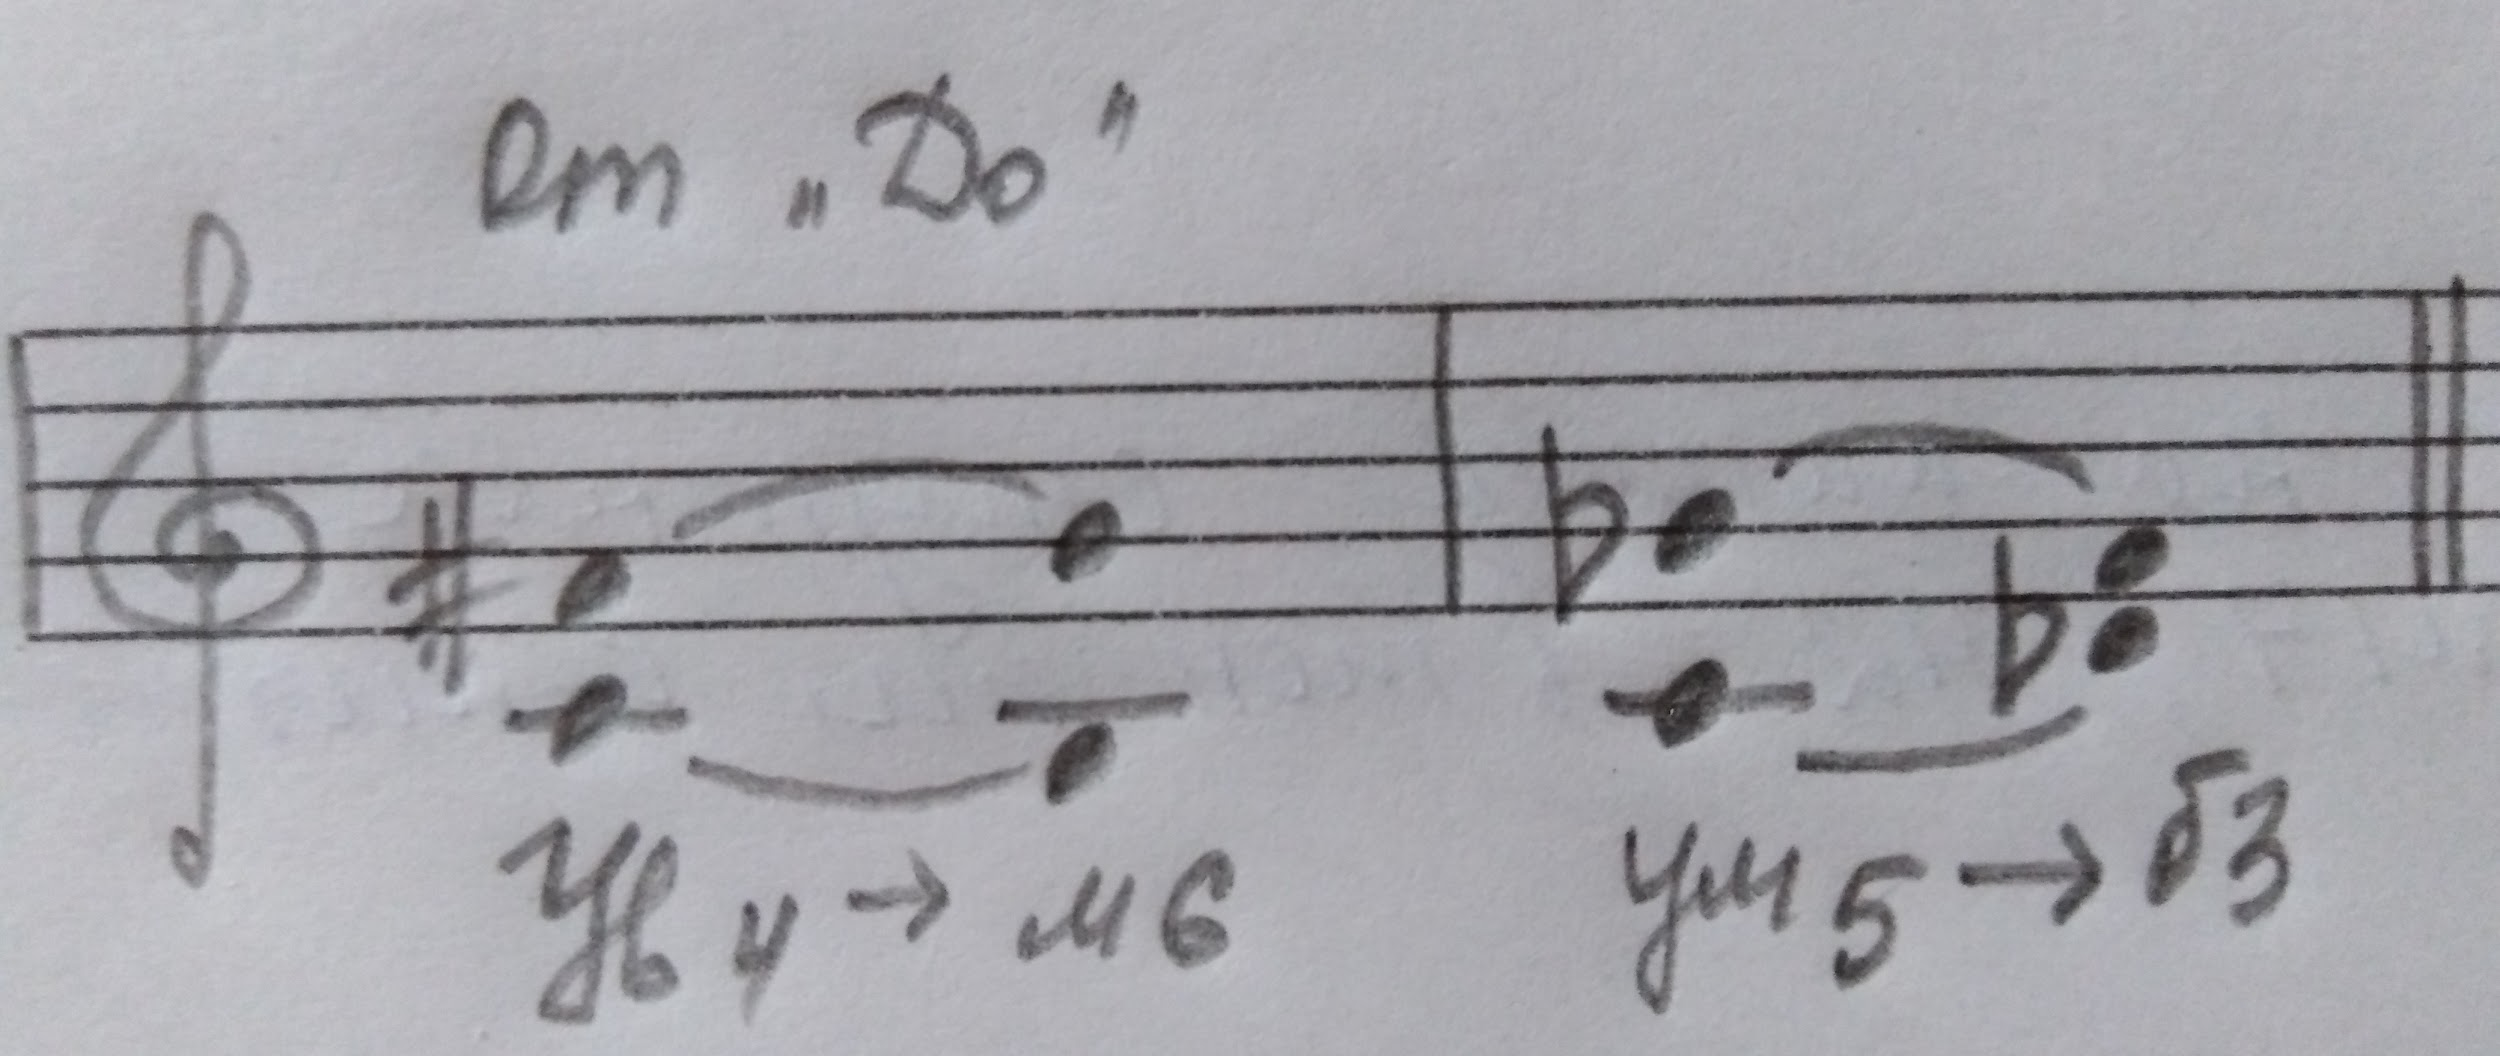 от „До"
Ув 4 → м 6
ум 5 → б 3